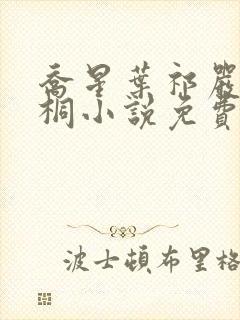 喬星葉祁嚴
桐小說免費
波士頓布里格